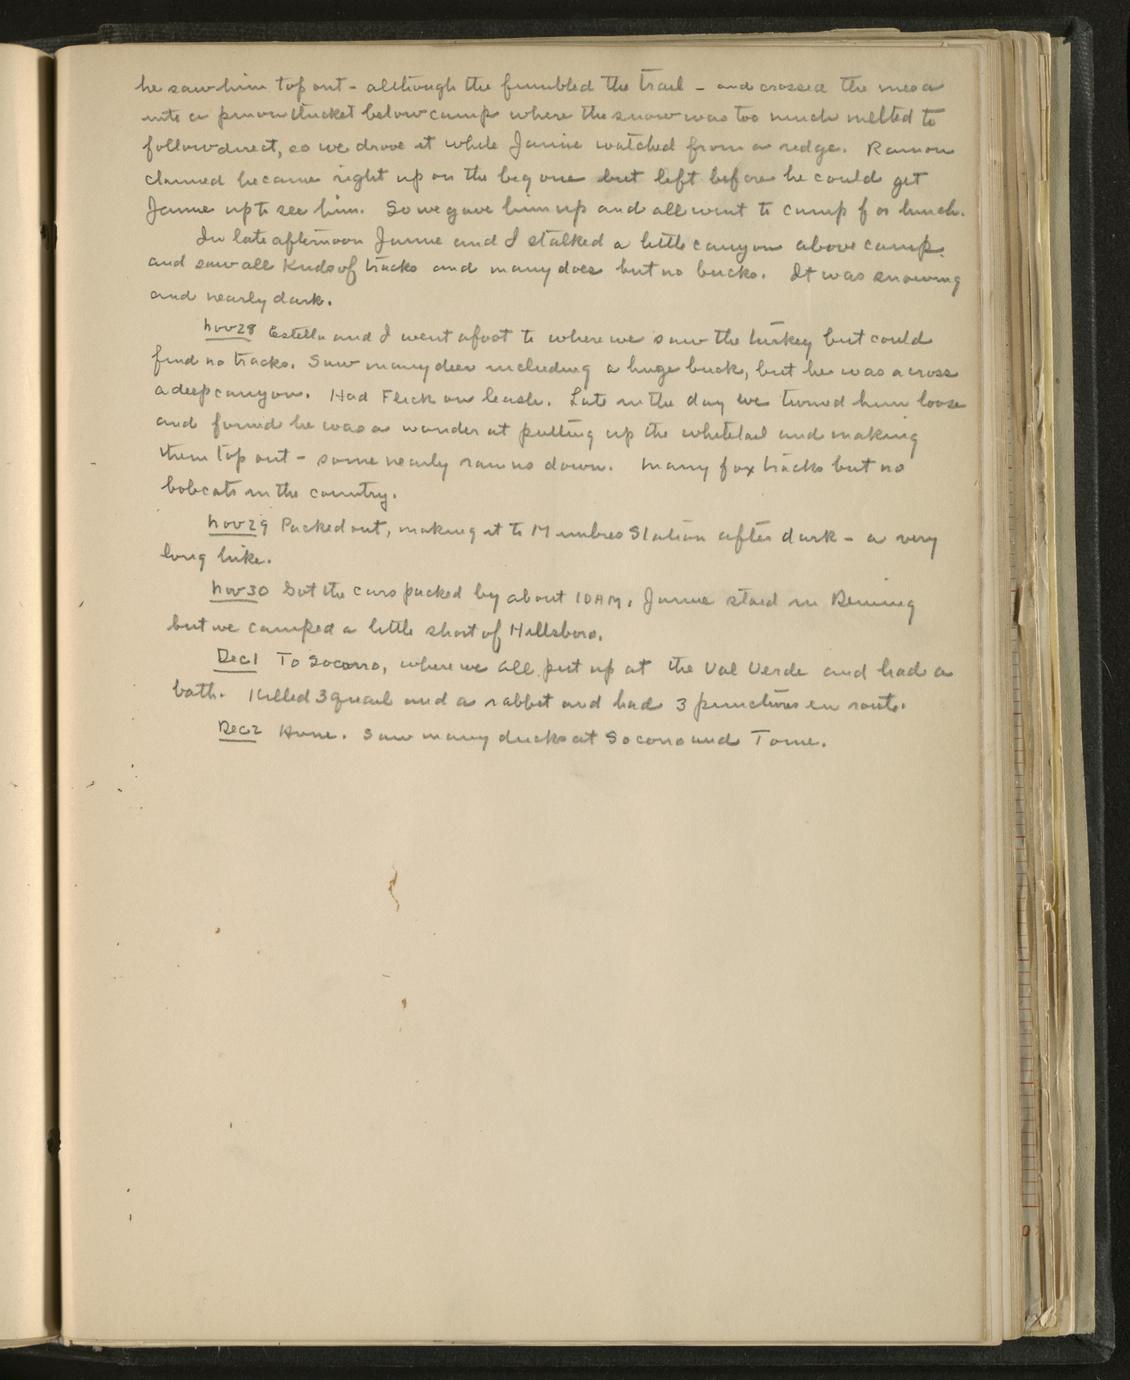 he saw him top out - although the fumbled the trail - and crossed the mesa
into a pinon thicket below camp where the snow was too much melted to
follow direct, so we drove it while Jamie watched from a ridge. Ramon
claimed he came right up on the big one but left before he could get
Jamie up to see him. So we gave him up and all went to camp for lunch.
In late afternoon Jamie and I stalked a little canyon above camp
and saw all kinds of tracks and many does but no bucks. It was snowing
and nearly dark.
Nov 28 Estella and I went afoot to where we saw the turkey but could
find no tracks. Saw many deer including a huge buck, but he was across
a deep canyon. Had Flick on leash. Late in the day we turned him loose
and found he was a wonder at putting up the whitetail and making
them top out - some nearly ran us down. Many fox tracks but no
bobcats in the country.
Nov 29 Packed out, making it to Mimbres Station after dark - a very
long hike.
Nov 30 Got the cars packed by about 10 AM. Jamie staid in Deming
but we camped a little short of Hillsboro.
Dec 1 To Socorro, where we all put up at the Val Verde and had a
bath. Killed 3 quail and a rabbit and had 3 punctures en route.
Dec 2 Home. Saw many ducks at Socorro and Tome.